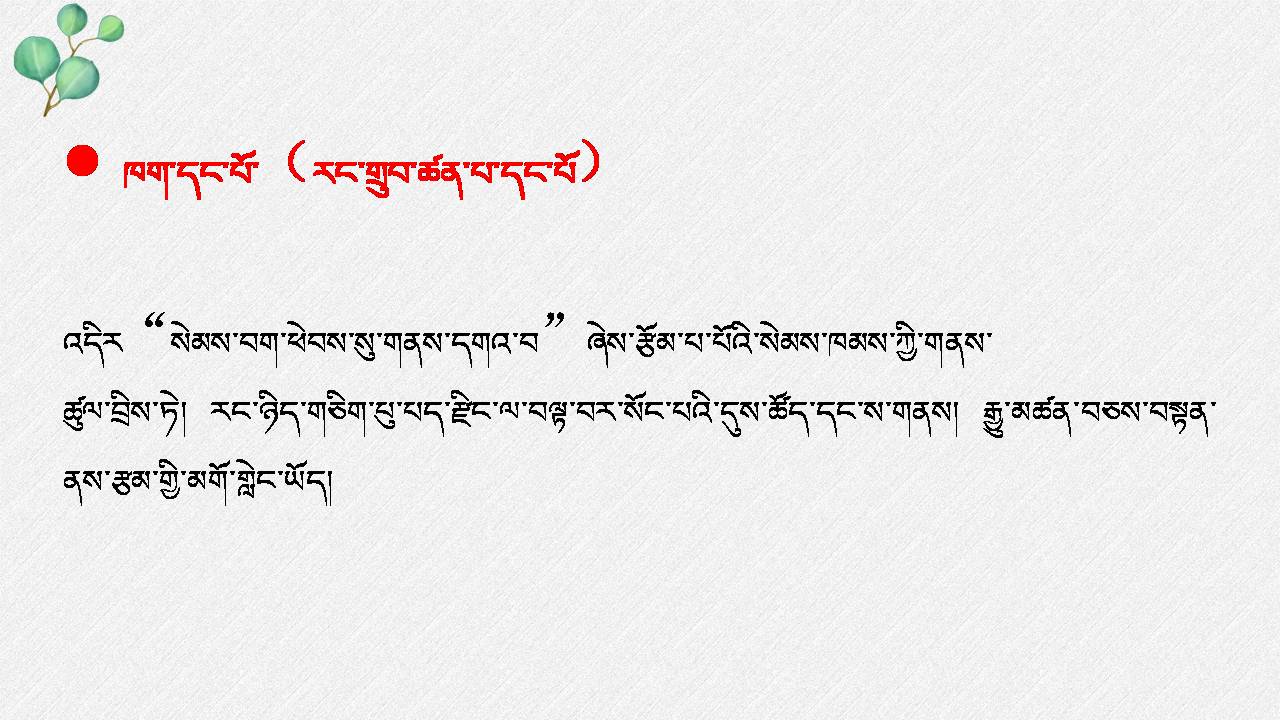 ● ཁག་དང་པོ་ （རང་གྲུབ་ཚན་པ་དང་པོ）
འདིར “སེམས་བག་ཕེབས་སུ་གནས་དཀའ་བ” ཞེས་རྩོམ་པ་པོའི་སེམས་ཁམས་ཀྱི་གནས་
ཚུལ་བྲིས་ཏེ། རང་ཉིད་གཅིག་པུ་པད་རྫིང་ལ་བལྟ་བར་སོང་པའི་དུས་ཚོད་དང་ས་གནས། རྒྱུ་མཚན་བཅས་བསྟན་
ནས་རྩམ་གྱི་མགོ་གླེང་ཡོད།